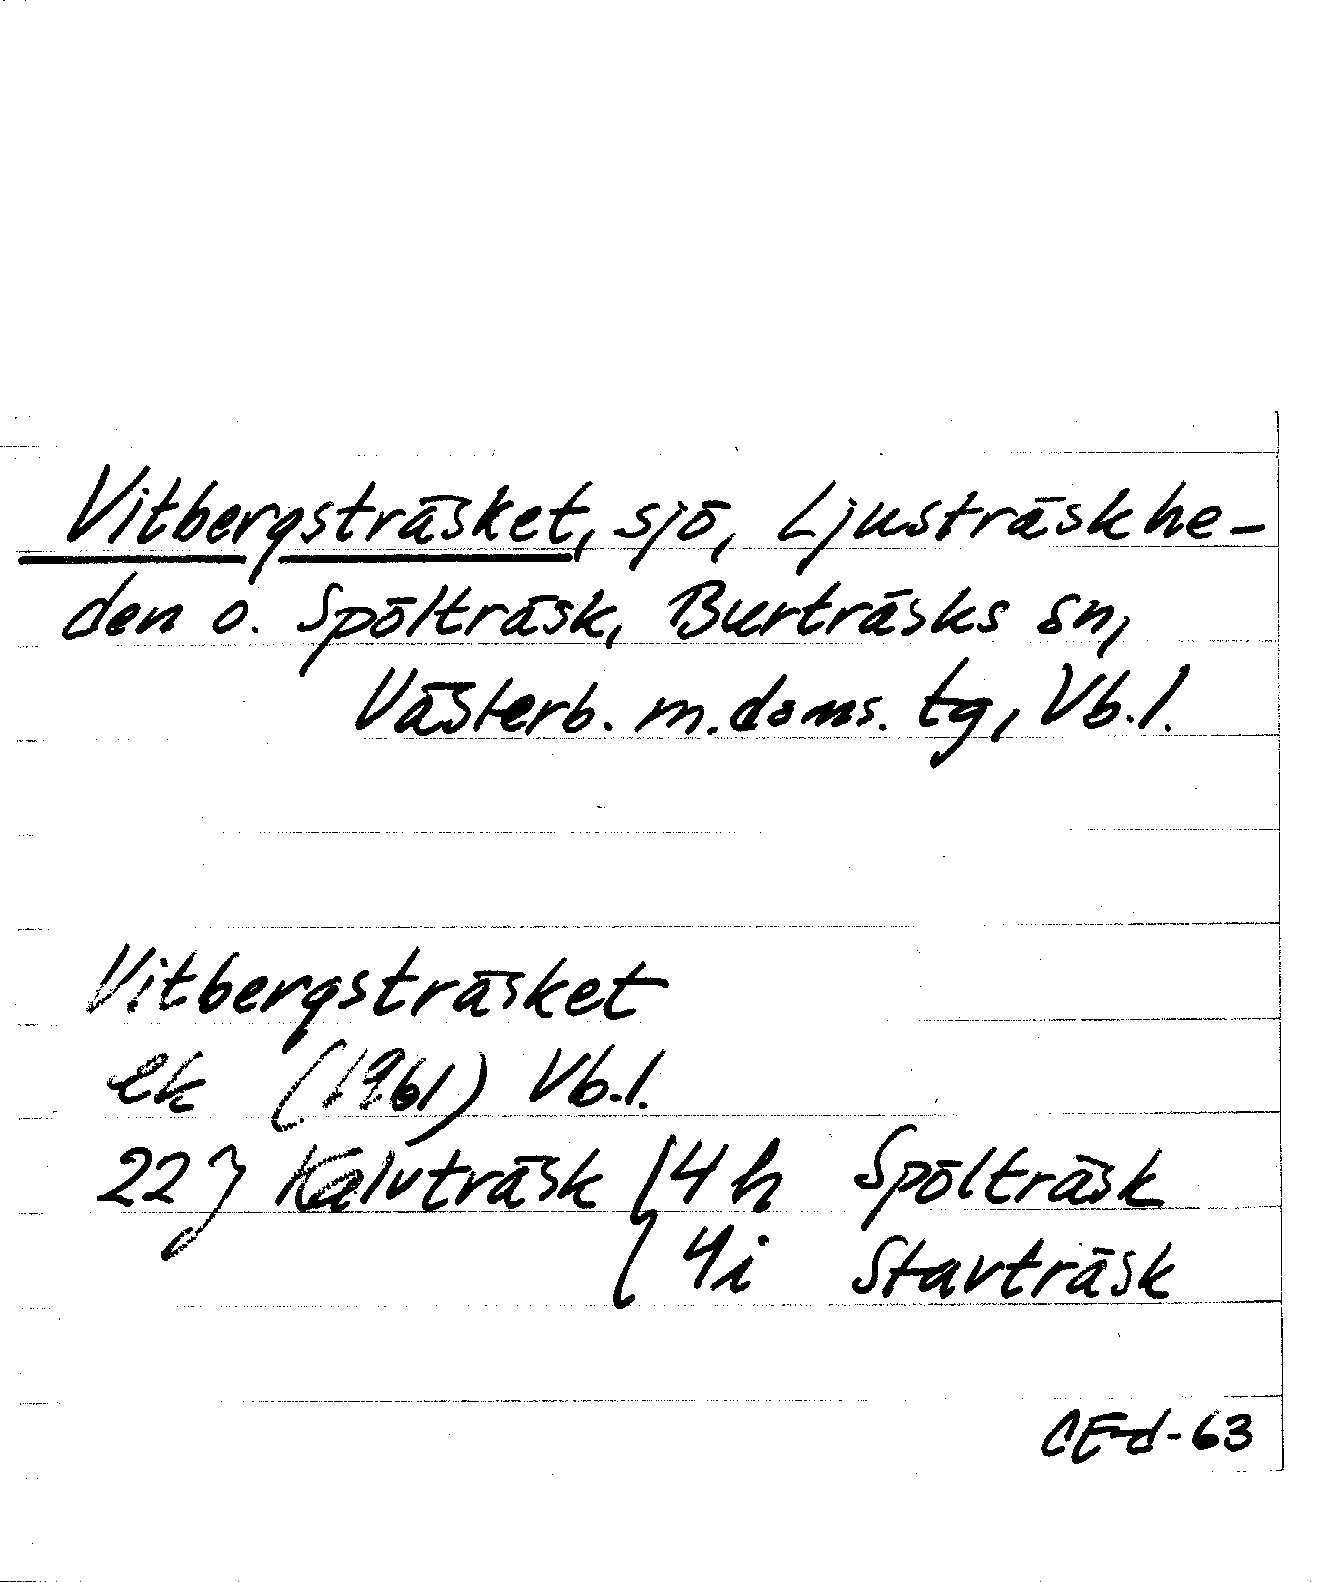 Vitbergsträsket, sjö, Ljusträskhe-
den o. Spölträsk, Burträsks sn,
Västerb. m. doms. tg, Vb.l.
Vitbergsträsket
ek (1961) Vb.l.
22J Kalvträsk { 4h Spölträsk
4i Stavträsk
CE-d-63